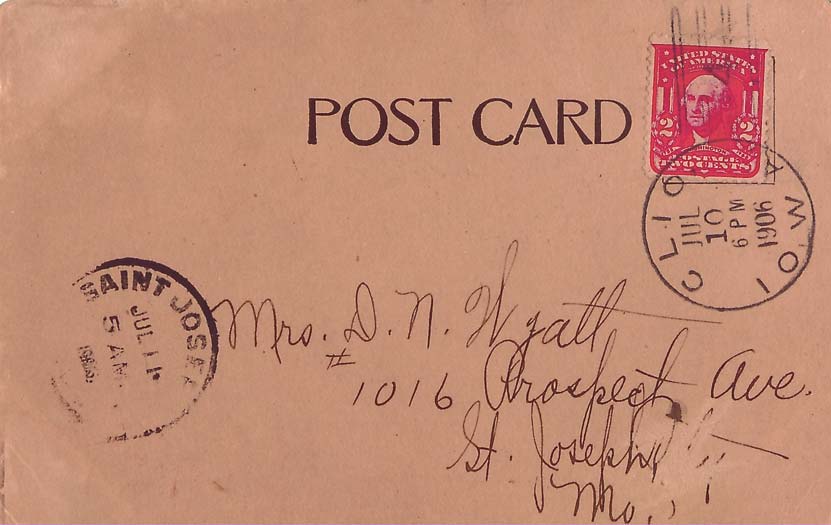 POST CARD
UNITED STATES
OF AMERICA
2 2
WASHINGTON
POSTAGE
TWO CENTS
CLIO IOWA
JUL
10
6 PM
1906
SAINT JOSE
JUL 11
5 AM
Mrs. D. N. Wyatt
# 1016 Prospect Ave.
St. Joseph
Mo.